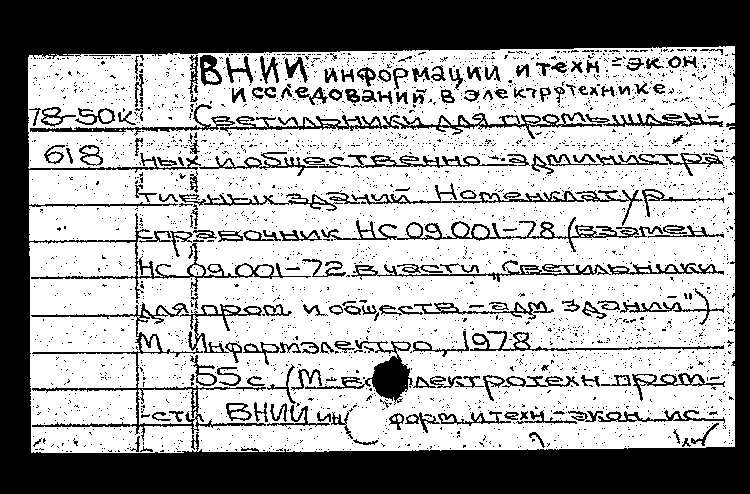 ВНИИ информации и техн-экон.
исследований в электротехнике.
78-50к Светильники для промышлен-
618 ных и общественно-администра
тивных зданий. Номенклатур.
справочник НС 09.001-78 (взамен
НС 09.001-72 в части „Светильники
для пром. и обществ.-адм. зданий")
М., Информэлектро, 1978.
55 с. (М-во электротехн пром-
-сти, ВНИИ информ. и техн.-экон. ис-